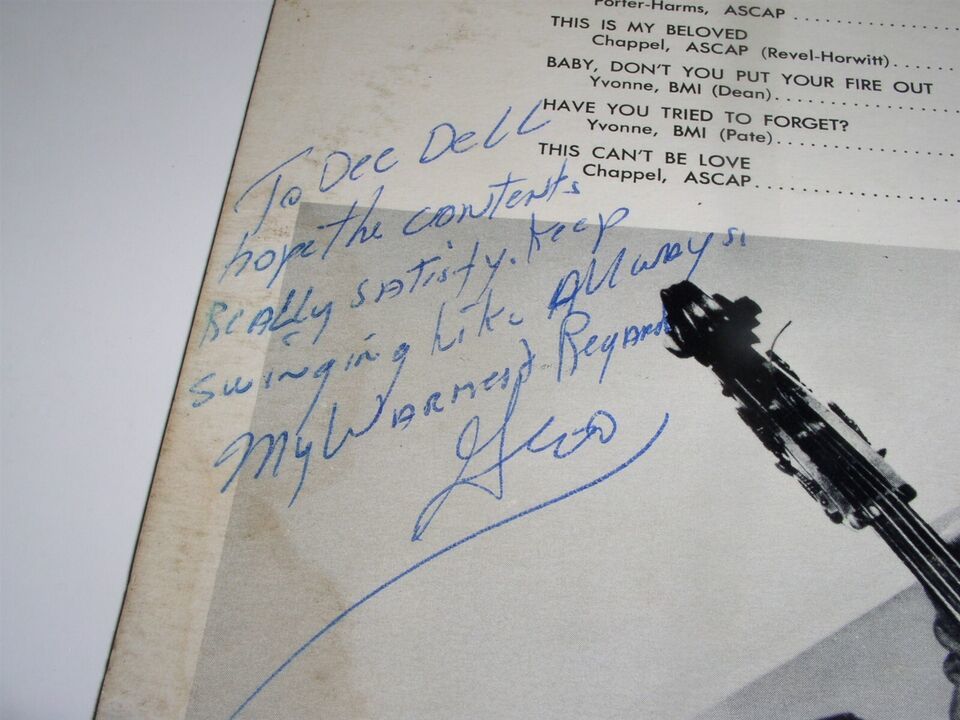 Porter-Harms, ASCAP ....................
THIS IS MY BELOVED
Chappel, ASCAP (Revel-Horwitt)..........
BABY, DON'T YOU PUT YOUR FIRE OUT
Yvonne, BMI (Dean)......................
HAVE YOU TRIED TO FORGET?
Yvonne, BMI (Pate)......................
THIS CAN'T BE LOVE
Chappel, ASCAP..........................
To Dee Dell
hope the contents
Really satisfy. Keep
swinging Like Allways
My Warmest Regards